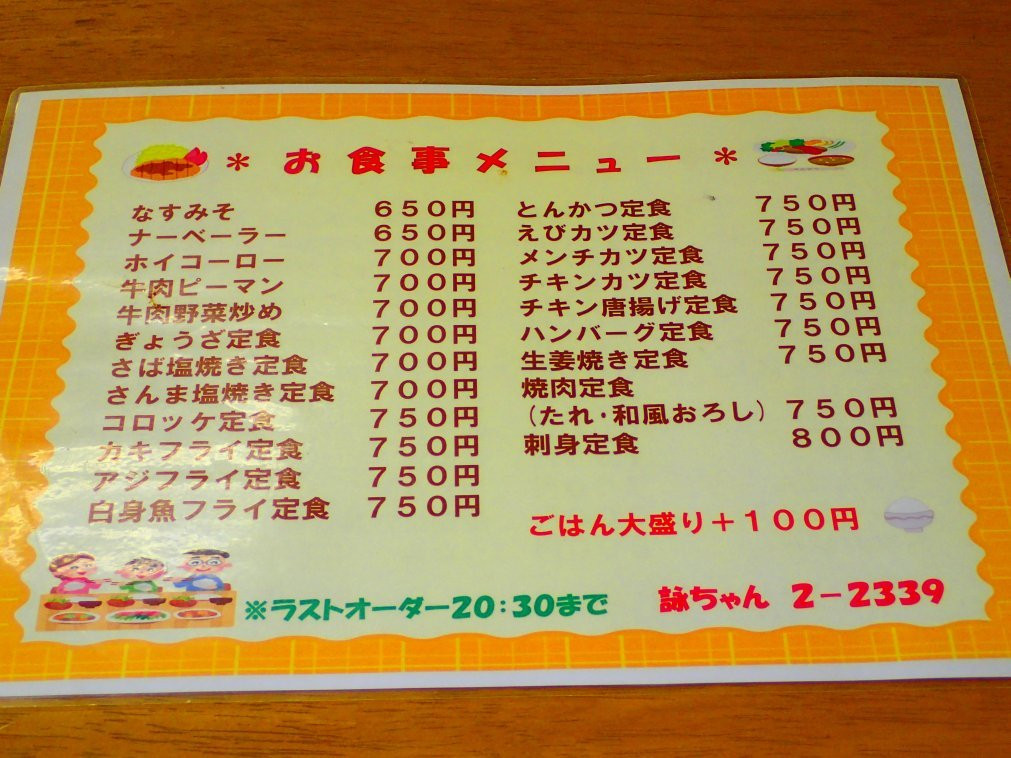 ＊お食事メニュー＊
なすみそ　６５０円
ナーベーラー　６５０円
ホイコーロー　７００円
牛肉ピーマン　７００円
牛肉野菜炒め　７００円
ぎょうざ定食　７００円
さば塩焼き定食　７００円
さんま塩焼き定食　７００円
コロッケ定食　７５０円
カキフライ定食　７５０円
アジフライ定食　７５０円
白身魚フライ定食　７５０円
とんかつ定食　７５０円
えびカツ定食　７５０円
メンチカツ定食　７５０円
チキンカツ定食　７５０円
チキン唐揚げ定食　７５０円
ハンバーグ定食　７５０円
生姜焼き定食　７５０円
焼肉定食
（たれ・和風おろし）　７５０円
刺身定食　８００円
ごはん大盛り＋１００円
※ラストオーダー20：30まで
詠ちゃん　２－2339